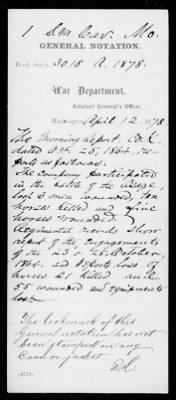 1 S.M. Cav. Mo.
GENERAL NOTATION.
Book mark: 3018 A 1878.
War Department,
Adjutant General's Office,
Washington, April 12, 1878.
The Morning Report Co. C.
dated Oct 25, 1864, re-
ports as follows:
The company participated
in the battle of the Osage,
lost 3 men wounded, ten
horses killed and five
horses wounded.
Regimental records show
report of the engagements
of the 23 & 25 October,
1864, and reports loss of
horses 21 killed and
55 wounded and equipments
lost.
The bookmark of this
General notation has not
been stamped on any
Card or jacket